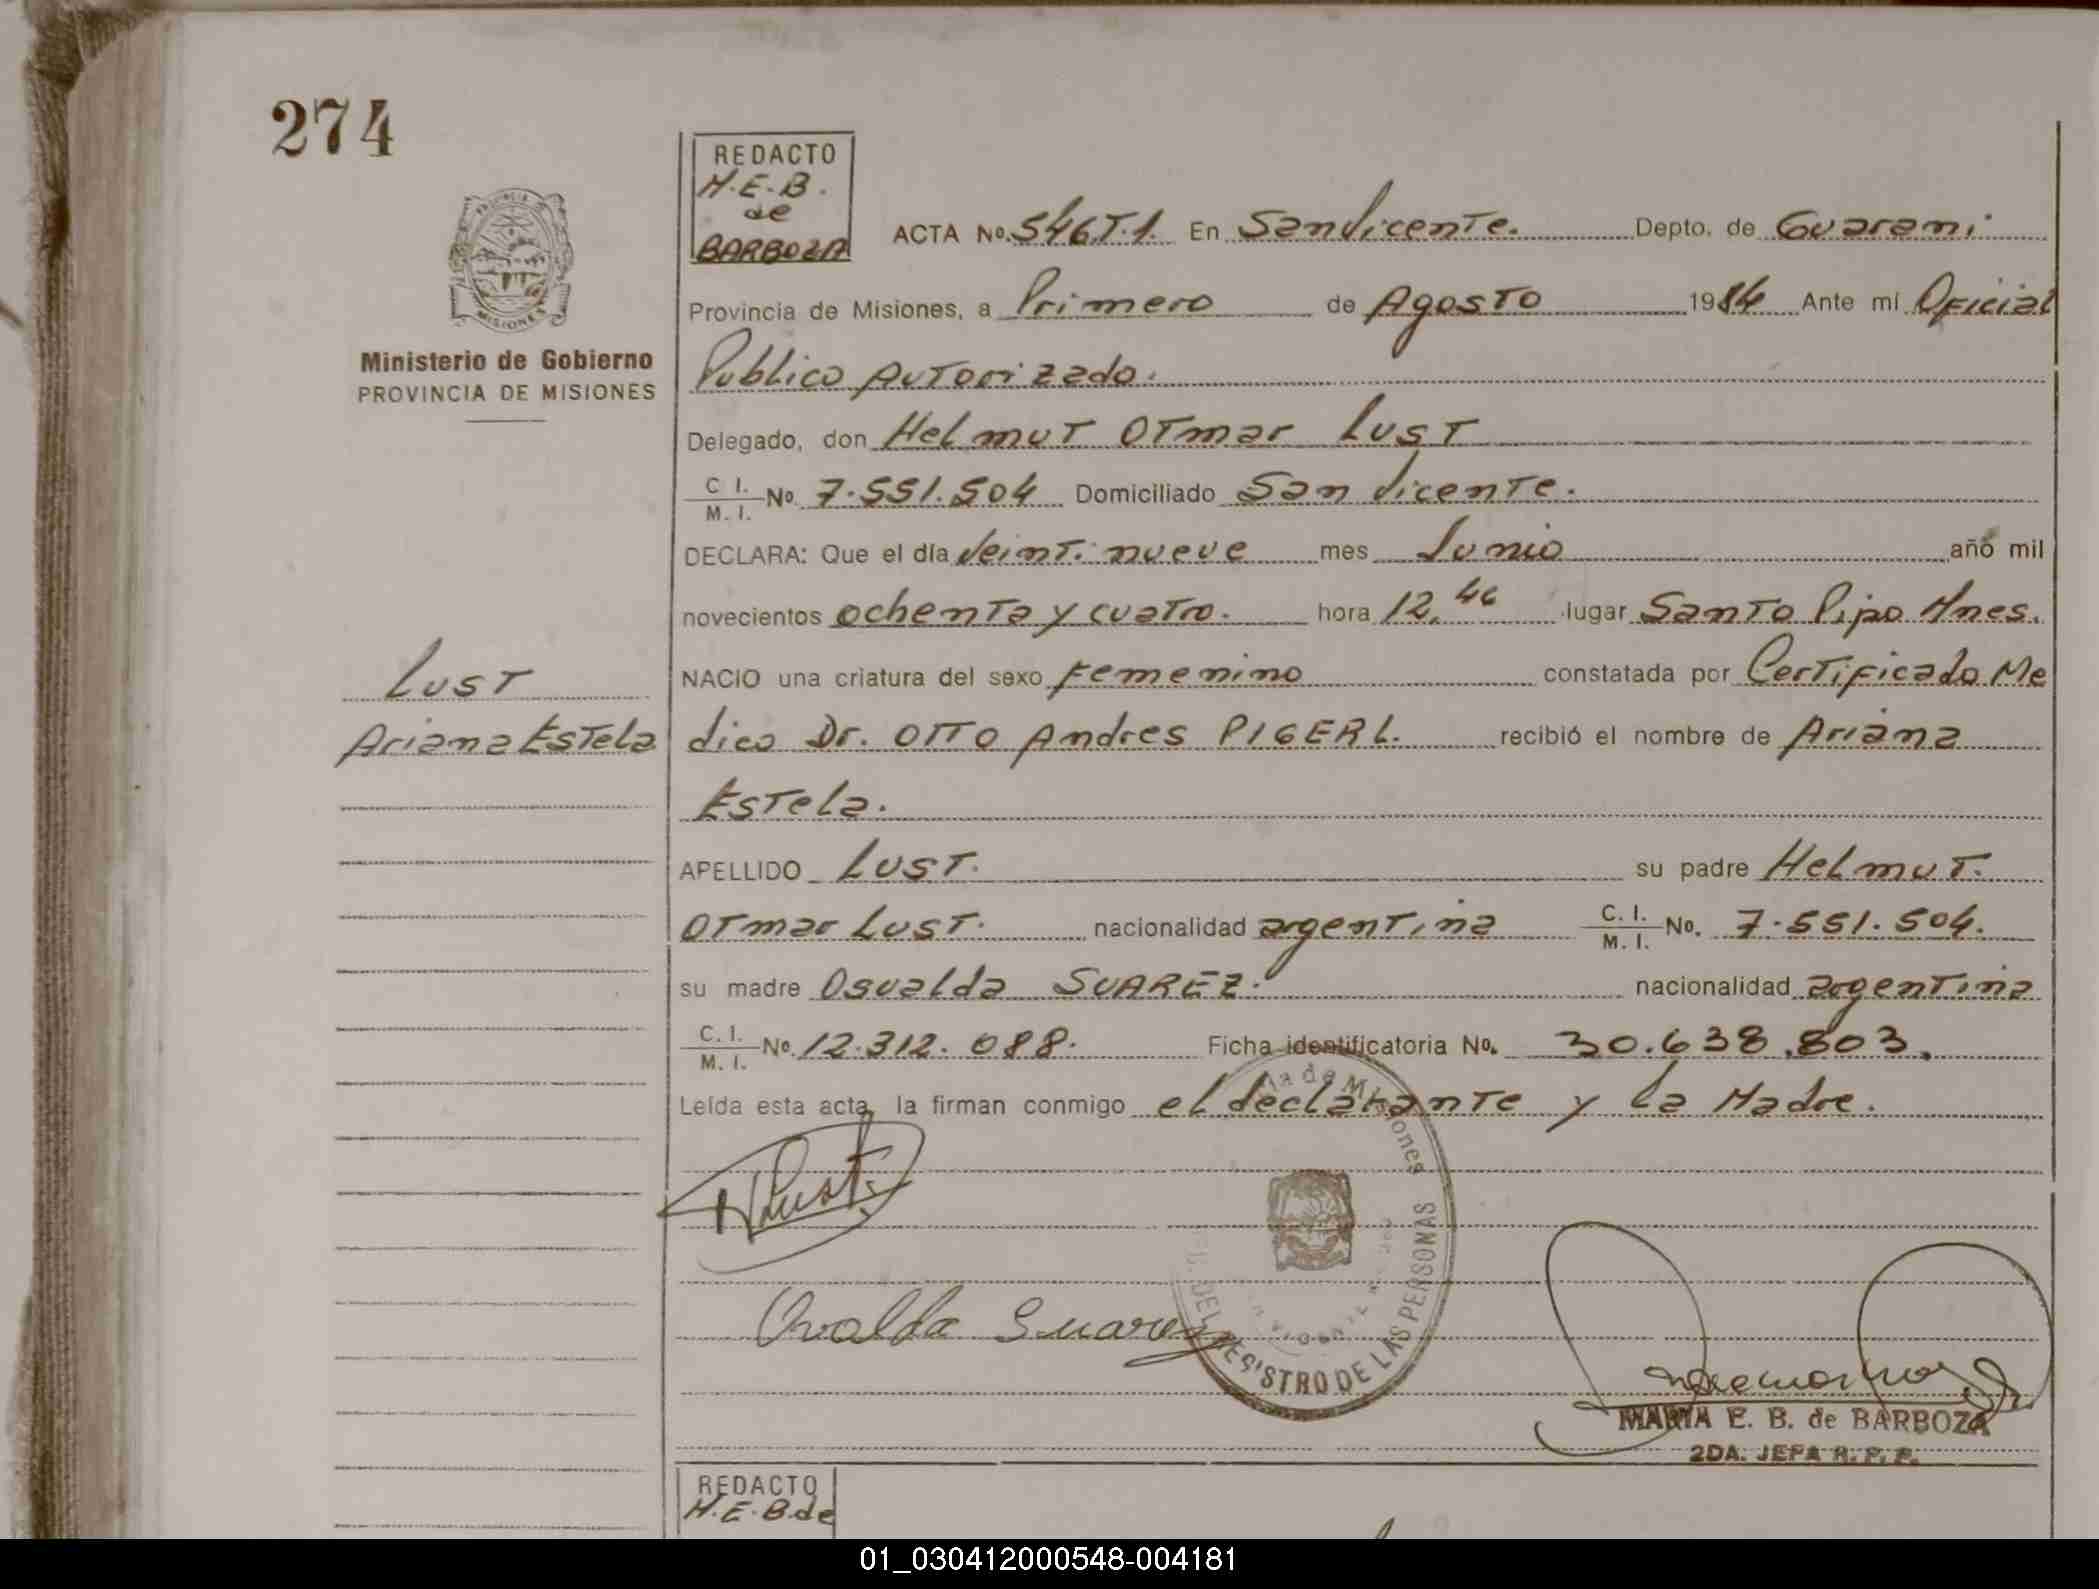 274
REDACTO
M.E.B.
de
BARBOZA
PROVINCIA DE
MISIONES
Ministerio de Gobierno
PROVINCIA DE MISIONES
ACTA No. 546.T.1. En San Vicente. Depto. de Guarani
Provincia de Misiones, a Primero de Agosto 1984 Ante mí Oficial
Publico Autorizado.
Delegado, don Helmut Otmar Lust
C. I. / M. I. No. 7.551.504 Domiciliado San Vicente.
DECLARA: Que el día Veinti nueve mes Junio año mil
novecientos ochenta y cuatro. hora 12.46 lugar Santo Pipo Mnes.
NACIO una criatura del sexo Femenino constatada por Certificado Me
dico Dr. OTTO Andres PIGERL. recibió el nombre de Ariana
Estela.
Lust
Ariana Estela
APELLIDO Lust. su padre Helmut.
Otmar Lust. nacionalidad argentina C. I. / M. I. No. 7.551.504.
su madre Osualda SUAREZ. nacionalidad argentina
C. I. / M. I. No. 12.312.088. Ficha identificatoria No. 30.638.803.
Leída esta acta, la firman conmigo el declarante y la Madre.
HLust.
Osvalda Suarez
la de Misiones
DEL REGISTRO DE LAS PERSONAS
MARIA E. B. de BARBOZA
2DA. JEFA R. P. P.
REDACTO
M.E.B.de
01_030412000548-004181